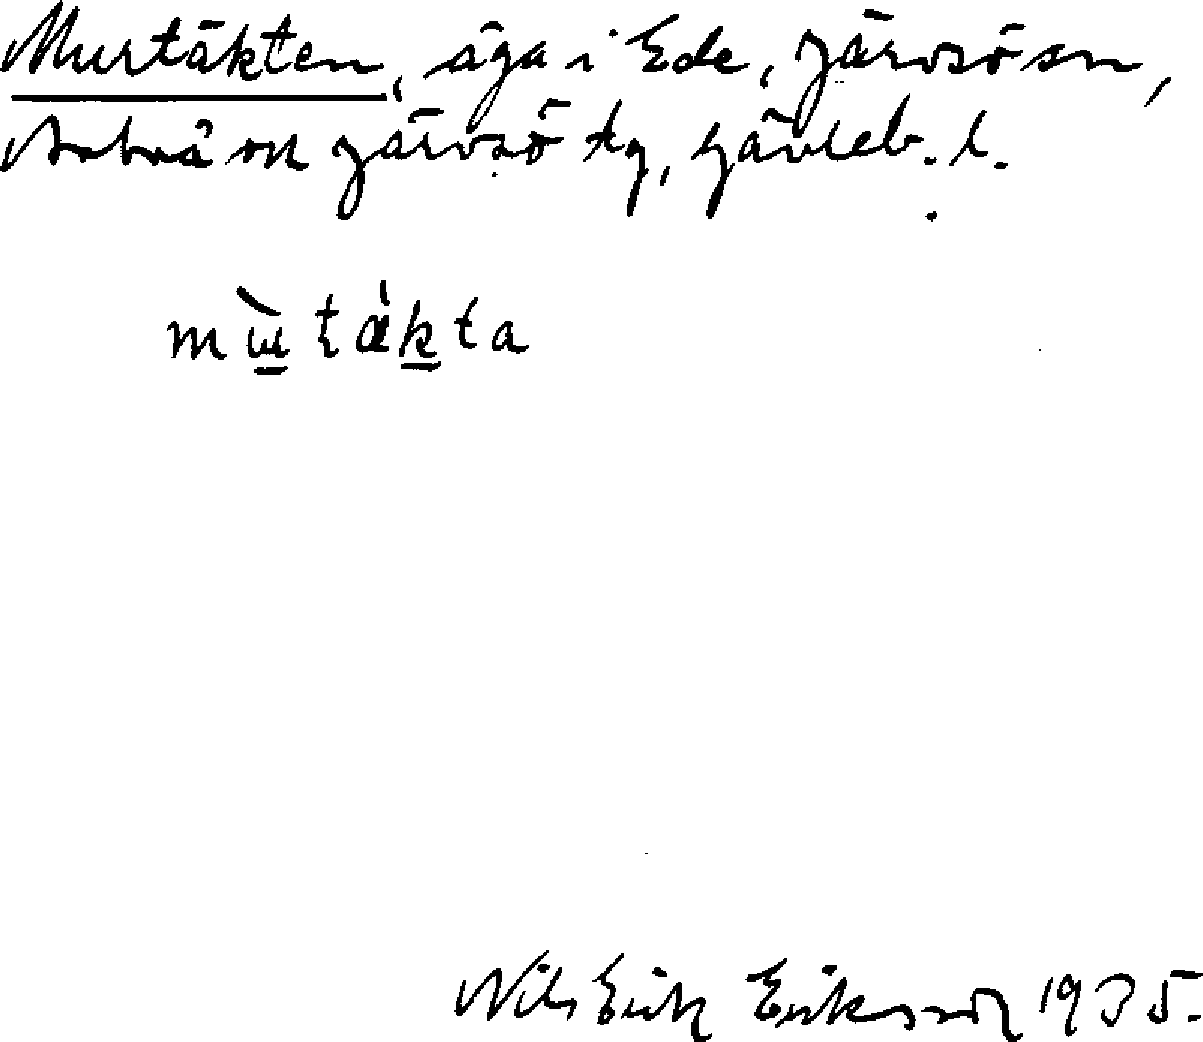 Murtäkten, äga i Ede, Järvsö sn,
Arbrå om Järvsö tg, Gävleb. l.
mɯ̀täkta
Nils Erik Eriksson 1935.